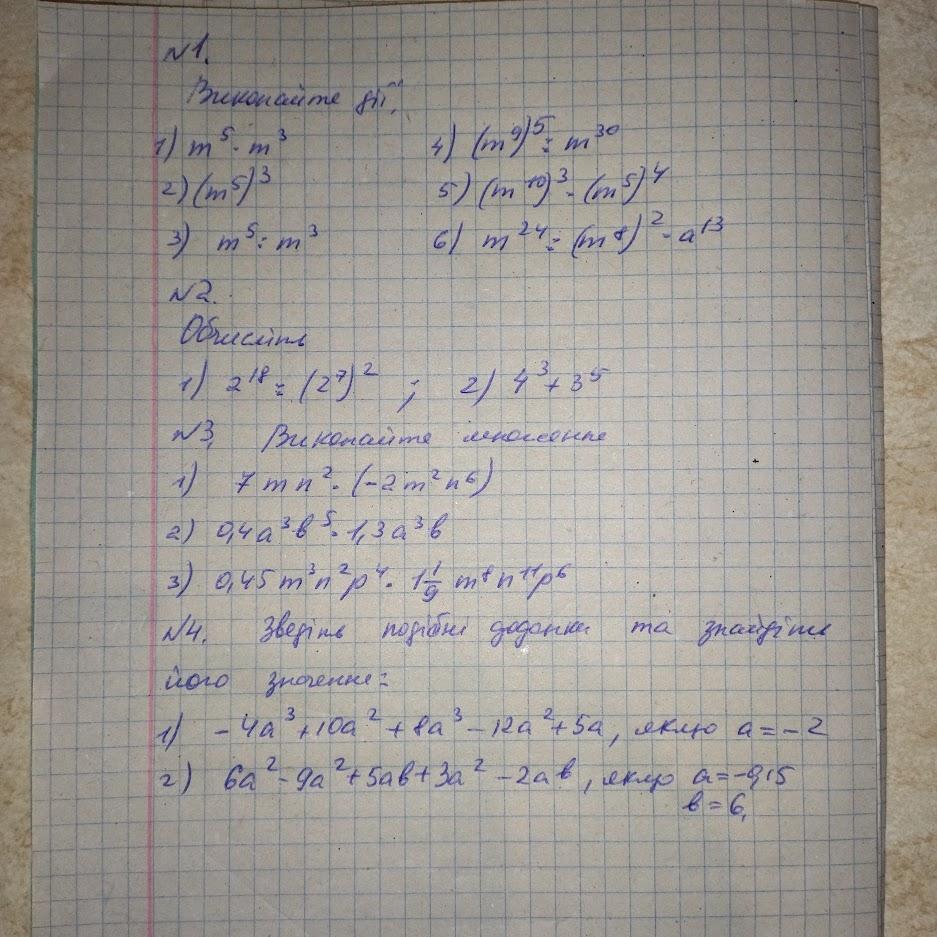 №1.
Виконайте дії.
1) m⁵ · m³ 4) (m⁹)⁵ : m³⁰
2) (m⁵)³ 5) (m¹⁰)³ · (m⁵)⁴
3) m⁵ : m³ 6) m²⁴ : (m⁸)² · a¹³
№2.
Обчисліть
1) 2¹⁸ : (2⁷)² ; 2) 4³ + 3⁵
№3. Виконайте множення
1) 7mn² · (-2m²n⁶)
2) 0,4a³b⁵ · 1,3a³b
3) 0,45m³n²p⁴ · 1 1/9 m⁸n¹¹p⁶
№4. Зведіть подібні доданки та знайдіть
його значення:
1) -4a³ + 10a² + 8a³ - 12a² + 5a, якщо a = -2
2) 6a² - 9a² + 5ab + 3a² - 2ab, якщо a = -0,15
b = 6.